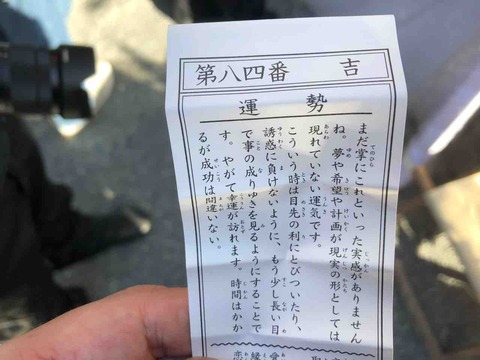 第八四番 吉
運勢
まだ掌にこれといった実感がありません
ね。夢や希望や計画が現実の形としては
現れていない運気です。
こういう時は目先の利にとびついたり、
誘惑に負けないように、もう少し長い目
で事の成りゆきを見るようにすることで
す。やがて幸運が訪れます。時間はかか
るが成功は間違いない。